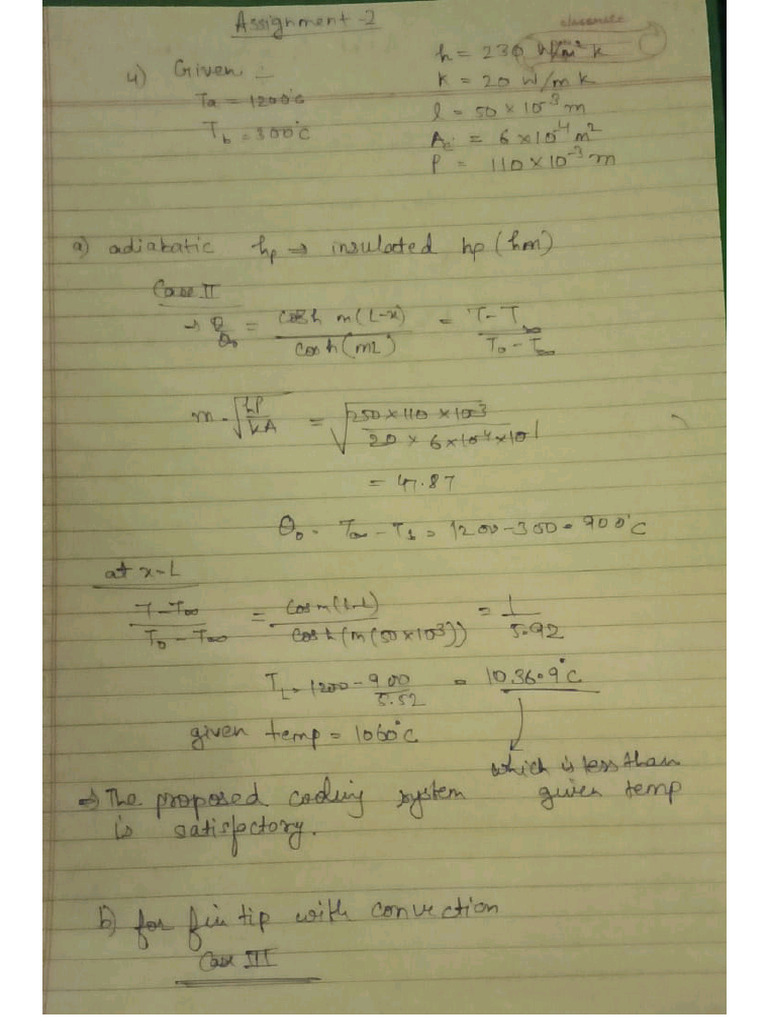 Assignment-2
classmate
4) Given :-
Ta = 1200°C
T_b = 300°C
h = 230 W/m² k
K = 20 W/m k
l = 50 × 10⁻³ m
A_c = 6 × 10⁻⁴ m²
P = 110 × 10⁻³ m
a) adiabatic hp → insulated hp (hm)
Case II
→ θ/θ₀ = cosh m(L-x)/cosh(mL) = T-T∞/T₀-T∞
m = √(hP/kA) = √(250×110×10⁻³/20×6×10⁻⁴×10¹)
= 47.87
θ₀ = T∞ - T_b = 1200-300 = 900°C
at x=L
T-T∞/T₀-T∞ = cos m(L-L)/cosh(m(50×10⁻³)) = 1/5.92
T_L = 1200 - 900/5.52 = 1036.9°C
given temp = 1060°C
which is less than
given temp
⇒ The proposed cooling system
is satisfactory.
b) for fin tip with convection
Case III